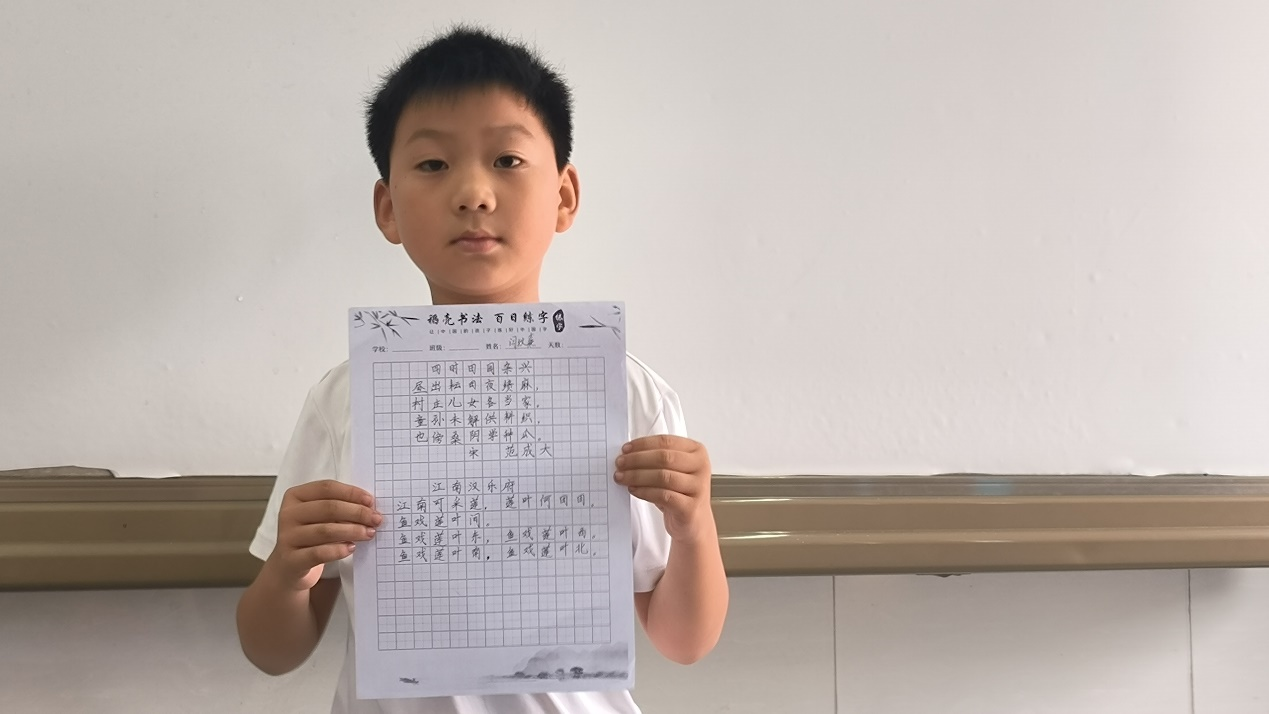 稻壳书法 百日练字
练字
学校: 班级: 姓名: 天数:
四时田园杂兴
昼出耘田夜绩麻,
村庄儿女各当家。
童孙未解供耕织,
也傍桑阴学种瓜。
宋 范成大
江南汉乐府
江南可采莲, 莲叶何田田。
鱼戏莲叶间。
鱼戏莲叶东, 鱼戏莲叶西。
鱼戏莲叶南, 鱼戏莲叶北。